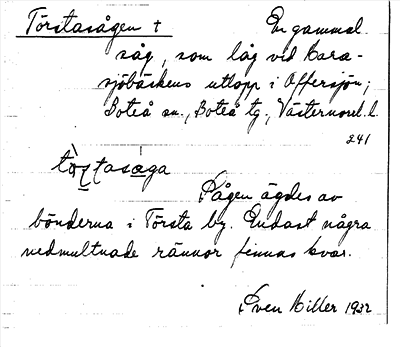 Törstasågen † En gammal
såg, som låg vid Kara-
sjöbäckens utlopp i Offersjön;
Boteå sn., Boteå tg., Västernorrl. l.
241
Sågen ägdes av
bönderna i Törsta by. Endast några
nedmultnade rännor finnas kvar.
Sven Miller 1932